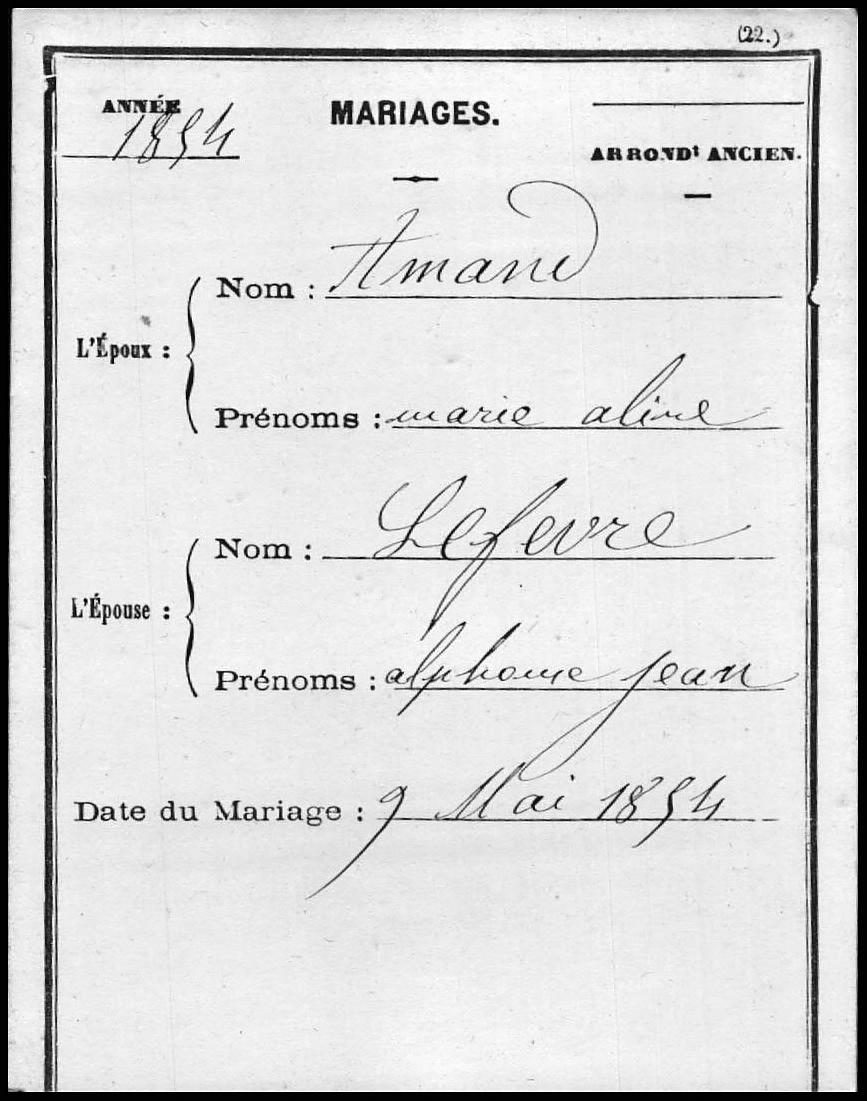 (22.)
ANNÉE
1854
MARIAGES.
ARRONDt ANCIEN.
L'Époux :
Nom : Amand
Prénoms : marie aline
L'Épouse :
Nom : Lefevre
Prénoms : alphonse jean
Date du Mariage : 9 Mai 1854